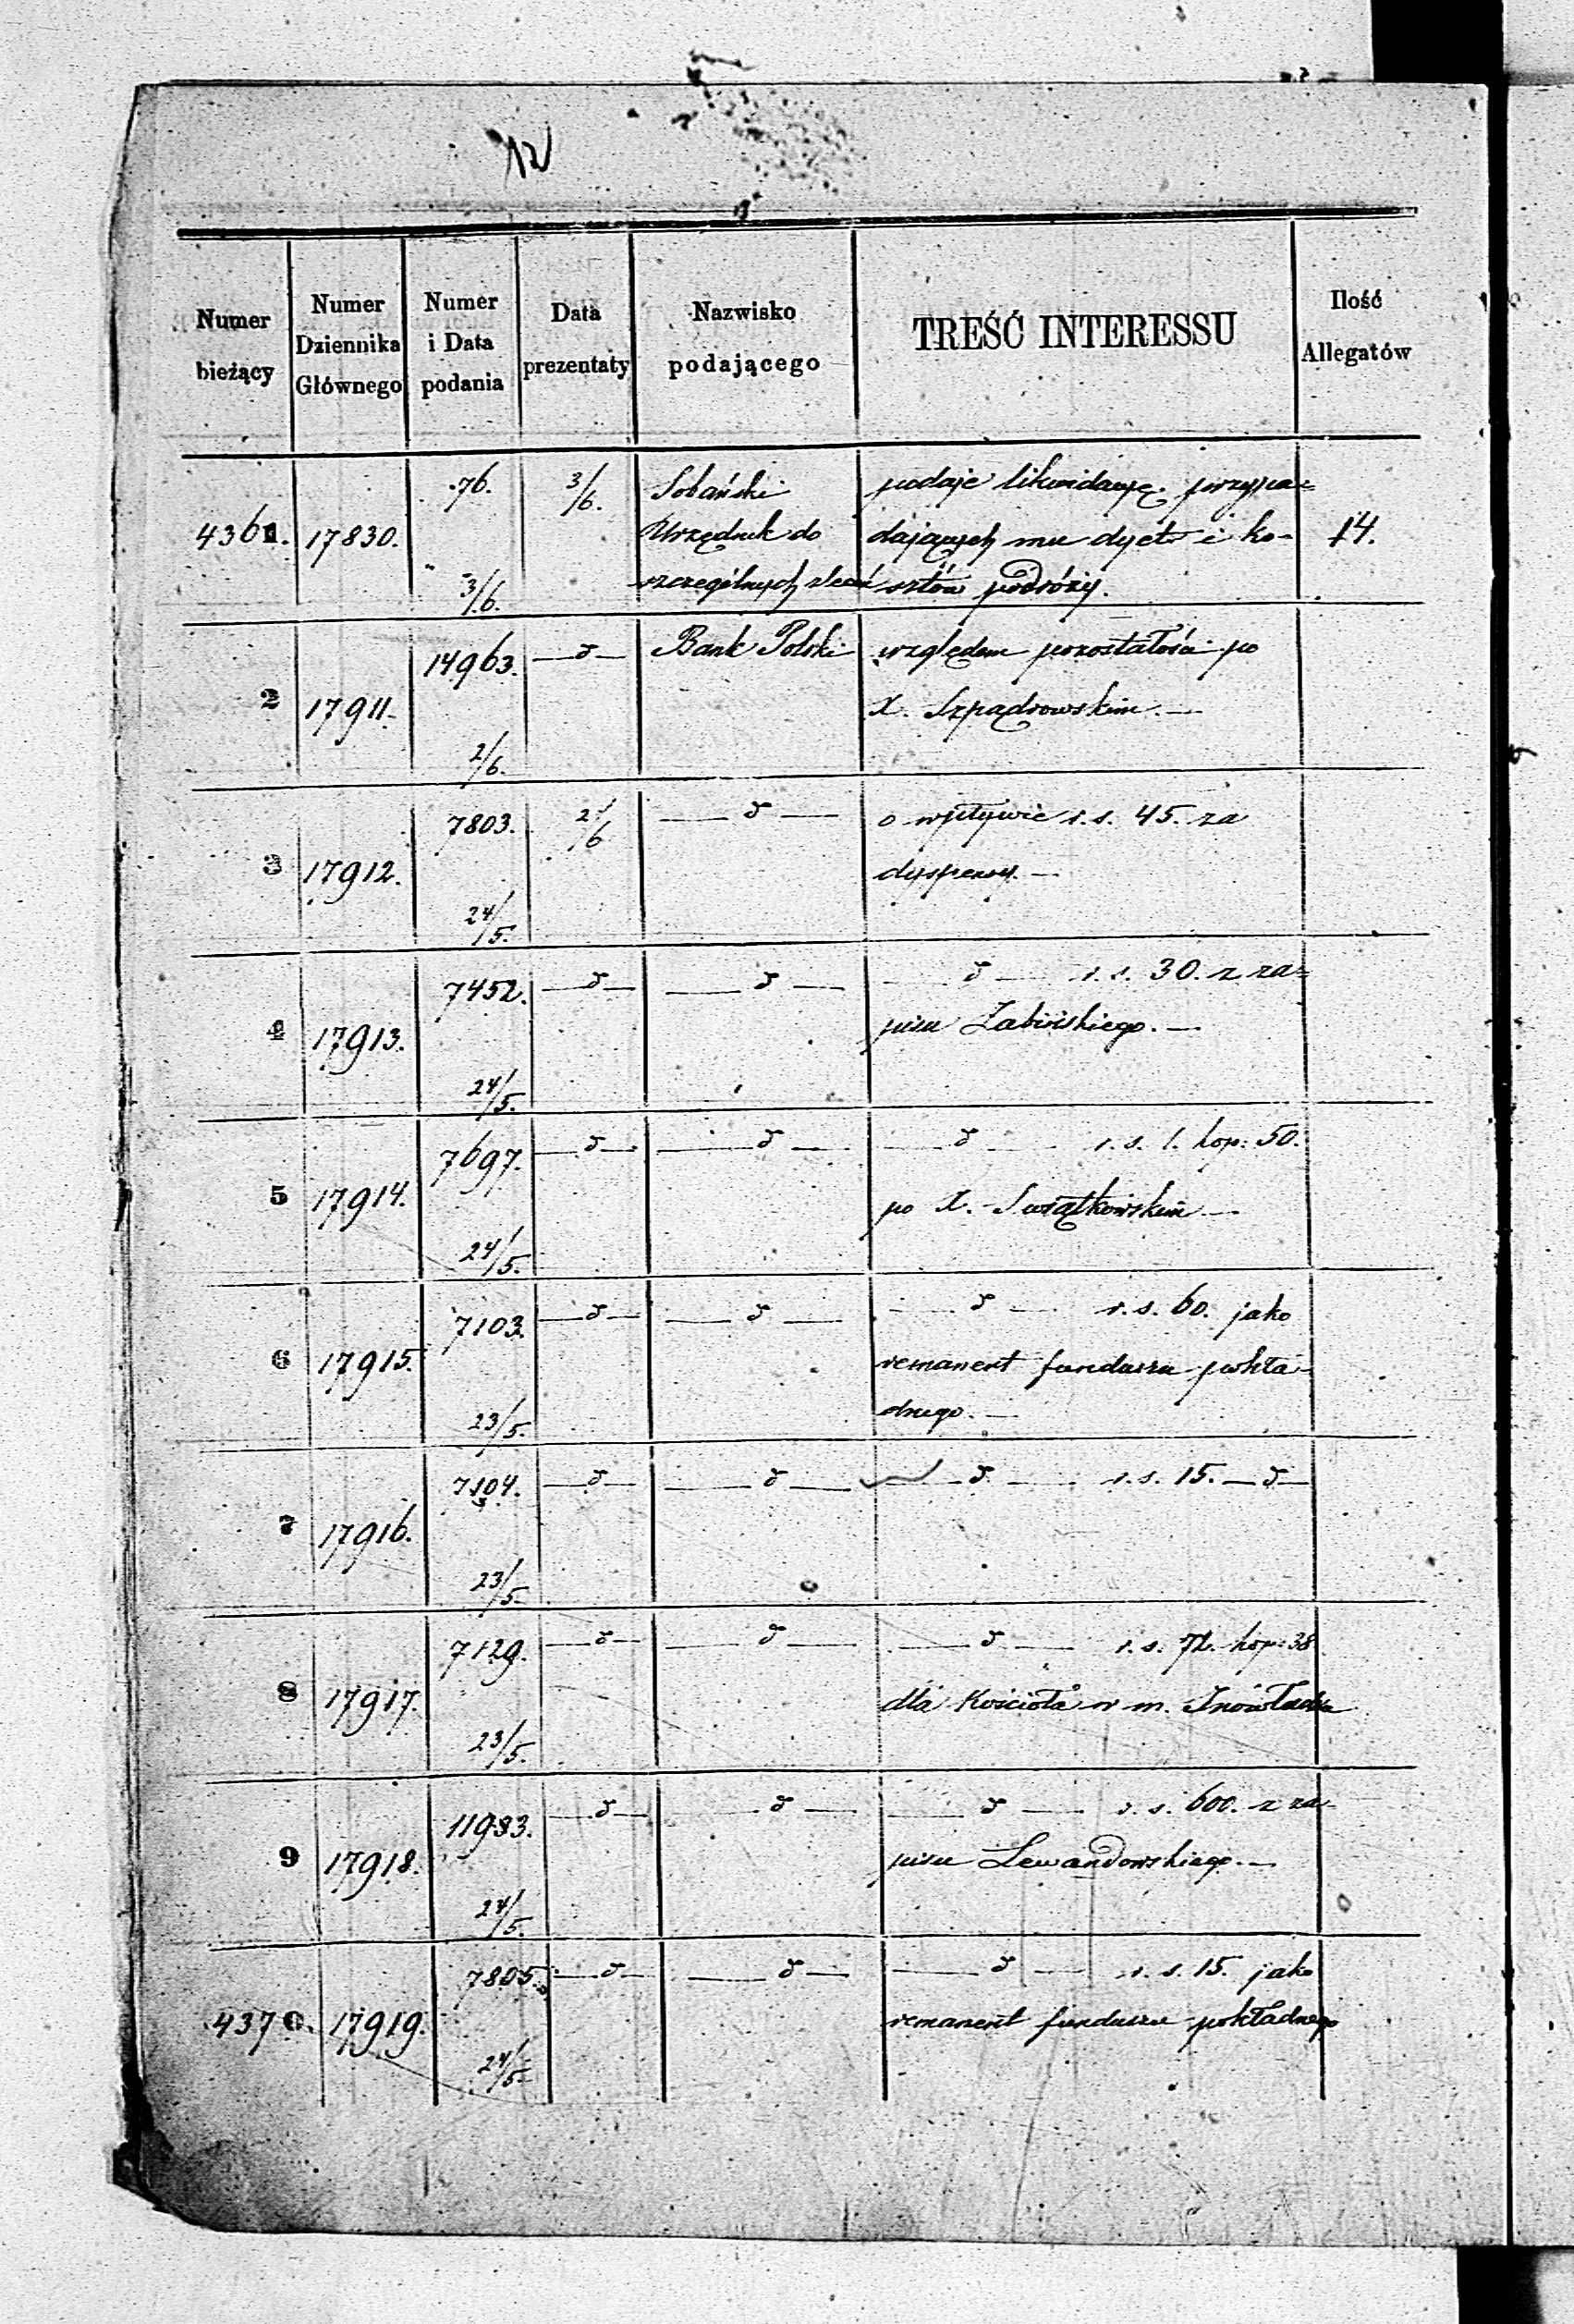 12
Numer bieżący
Numer Dziennika Głównego
Numer i Data podania
Data prezentaty
Nazwisko podającego
TREŚĆ INTERESSU
Ilość Allegatów
4361. 17830. 76. 3/6. 3/6. Sobański Urzędnik do szczególnych zleceń
podaje likwidacyę przypa=
dających mu dyet i ko-
sztów podróży.
14.
2 17911. 14963. 2/6. — d — Bank Polski
względem pozostałości po
X. Szpądrowskim. —
3 17912. 7803. 24/5. 2/6 — d —
o wpływie r. s. 45. za
dyspensy. —
4 17913. 7452. 24/5. — d — — d —
— d — r. s. 30. z za=
pisu Żabińskiego. —
5 17914. 7697. 24/5. — d — — d —
— d — r. s. 1. kop: 50.
po X. Swiątkowskim —
6 17915. 7103. 23/5. — d — — d —
— d — r. s. 60. jako
remanent funduszu pokła-
dnego. —
7 17916. 7104. 23/5. — d — — d —
— d — r. s. 15. — d —
8 17917. 7129. 23/5. — d — — d —
— d — r. s. 72. kop: 38
dla Kościoła w m. Inowłodzu
9 17918. 11983. 24/5. — d — — d —
— d — r. s. 600. z za-
pisu Lewandowskiego. —
4370. 17919. 7805. 24/5. — d — — d —
— d — r. s. 15. jako
remanent funduszu pokładnego